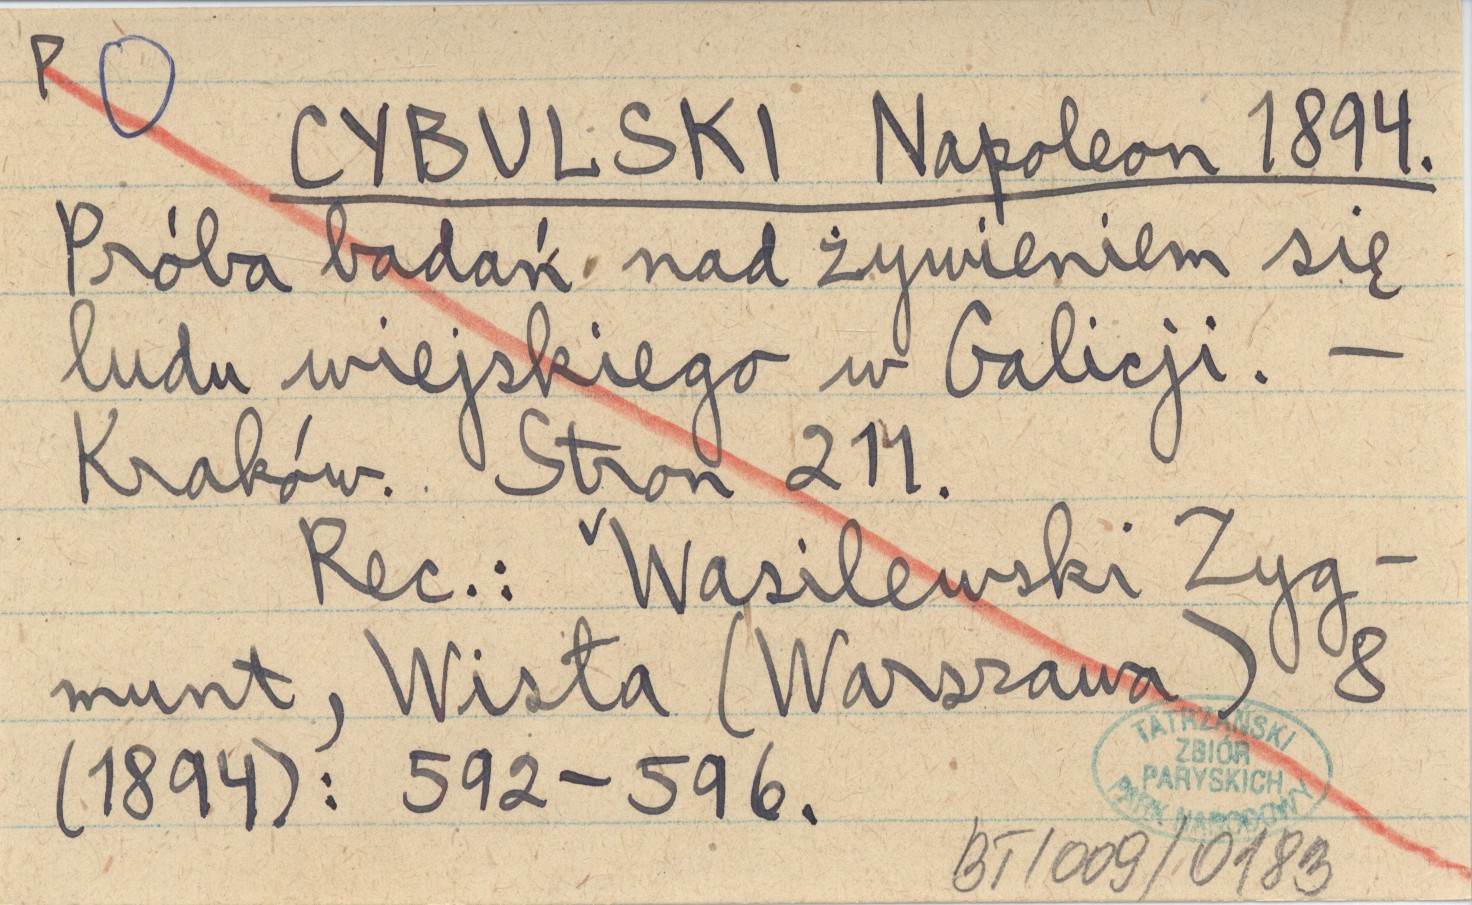 P
CYBULSKI Napoleon 1894.
Próba badań nad żywieniem się
ludu wiejskiego w Galicji. —
Kraków. Stron 211.
Rec.: Wasilewski Zyg-
munt, Wisła (Warszawa) 8
(1894): 592-596.
TATRZAŃSKI
ZBIÓR
PARYSKICH
PARK NARODOWY
BT/009/0183